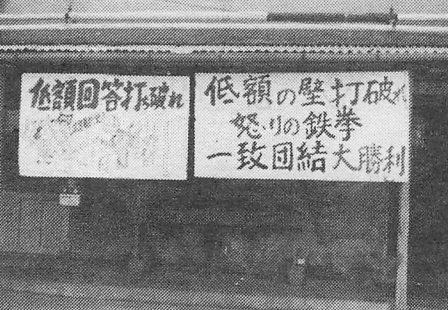 低額回答打ち破れ
低額の壁打破れ
怒りの鉄拳
一致団結大勝利